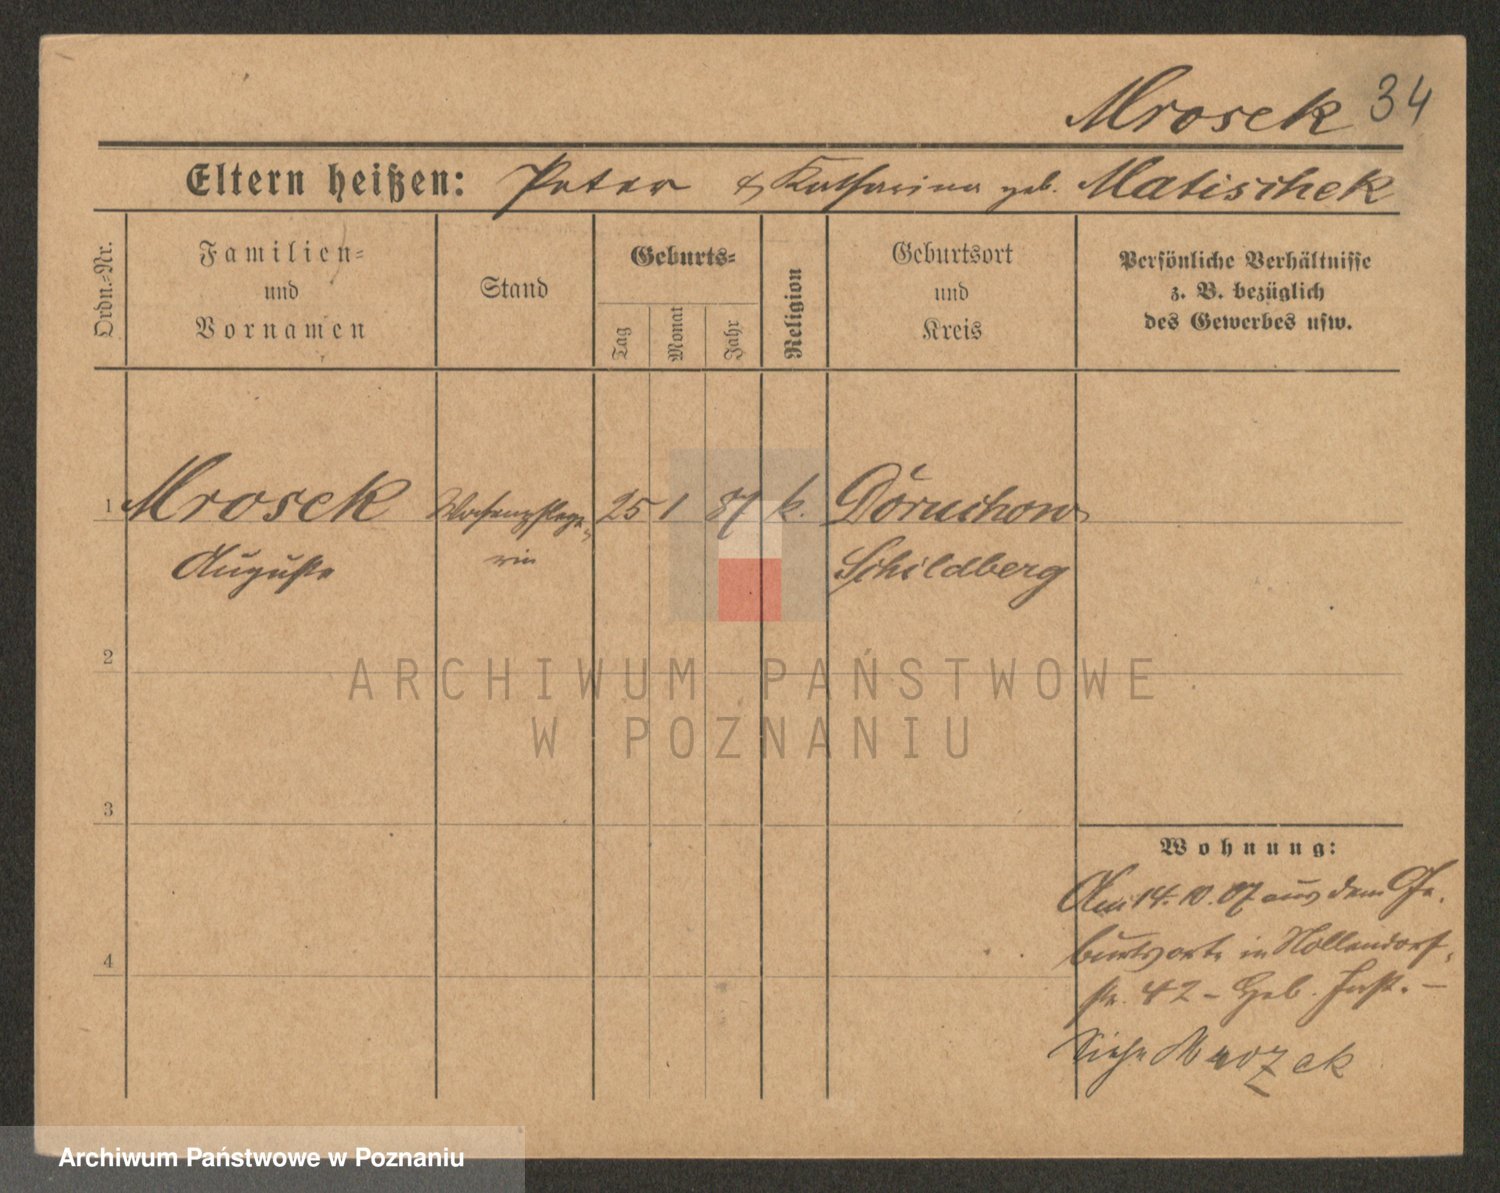 Mrosek 34
Eltern heißen: Peter & Katharina geb. Matischek
Ordn.-Nr.
Familien-
und
Vornamen
Stand
Geburts-
Tag
Monat
Jahr
Religion
Geburtsort
und
Kreis
Persönliche Verhältnisse
z. B. bezüglich
des Gewerbes usw.
1 Mrosek Wochenpflege- 25 1 87 k. Doruchow
Auguste rin Schildberg
2
3
4
Wohnung:
Am 14.10.07 aus dem Ge-
burtsorte in Nollendorf-
str. 42 - Geb. Inst. -
Siehe Mrozek
ARCHIWUM PAŃSTWOWE
W POZNANIU
Archiwum Państwowe w Poznaniu